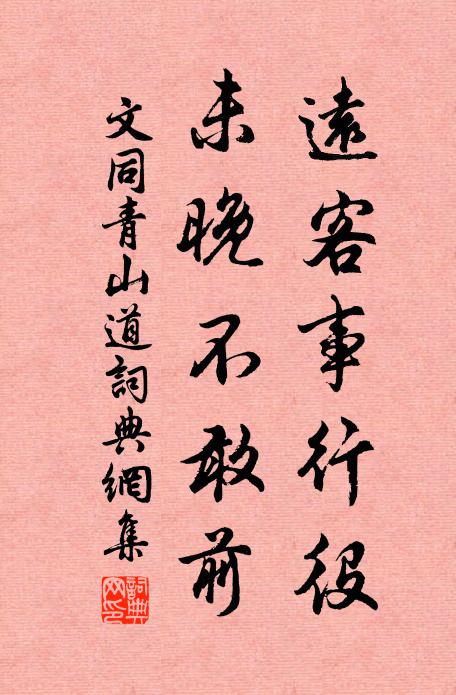 遠客事行役
未晚不敢前
文同青山道詞典網集
詞典網印